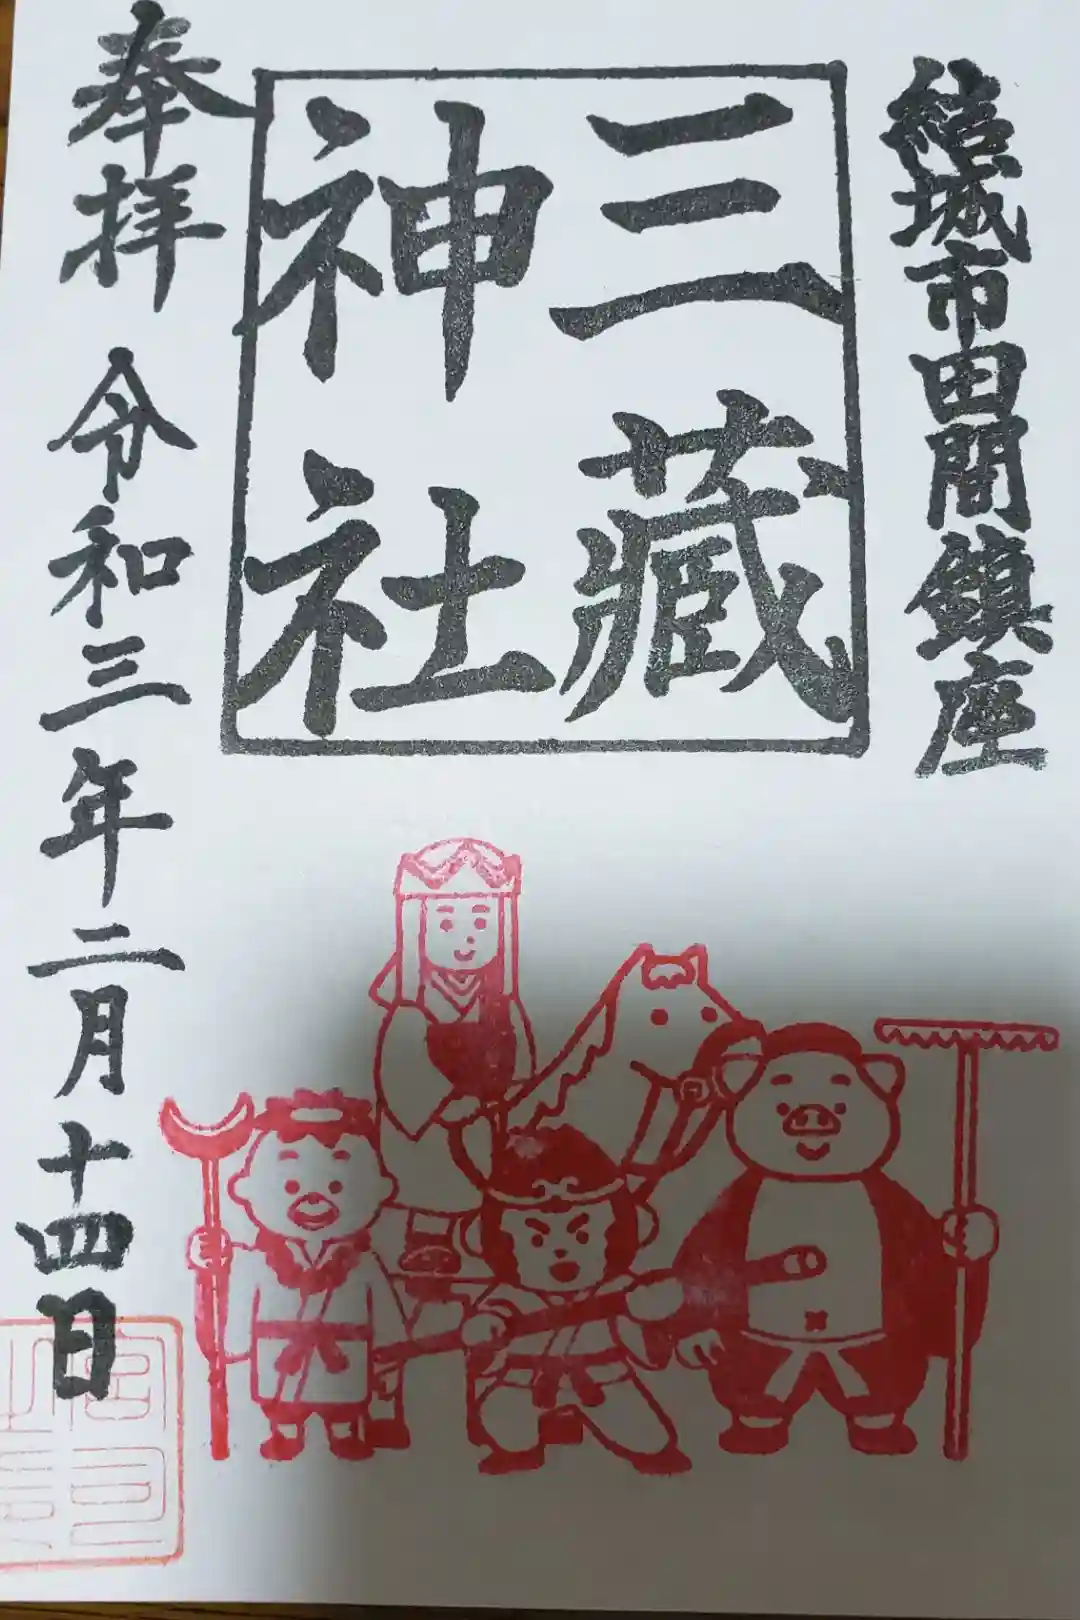 結城市田間鎮座
三藏
神社
奉拝 令和三年二月十四日